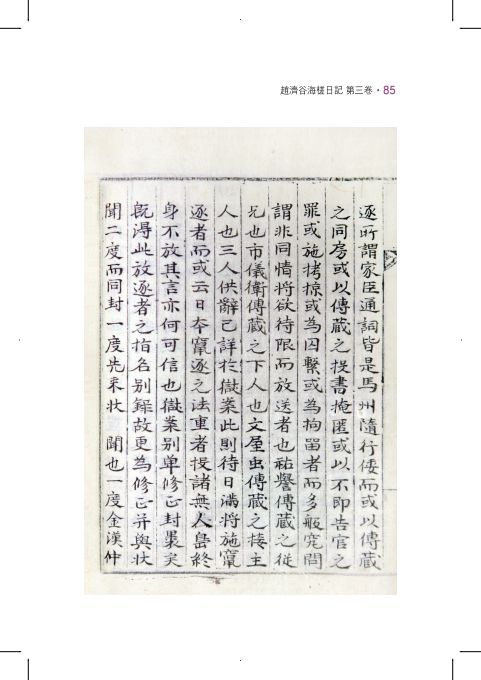 趙濟谷海槎日記 第三卷 · 85
逐所謂家臣通詞皆是馬州隨行倭而或以傳藏
之同房或以傳藏之投書掩匿或以不即告官之
罪或施拷掠或為囚繫或為拘留者而多般究問
謂非同情將欲待限而放送者也祐譽傳藏之從
兄也市儀衛傳藏之下人也文屋虫傳藏之接主
人也三人供辭已詳於獄案此則待日滿將施竄
逐者而或云日本竄逐之法重者投諸無人島終
身不放其言亦何可信也獄案別單修正封裹矣
既淂此放逐者之指名別錄故更為修正并與狀
聞二度而同封一度先来狀 聞也一度金漢仲